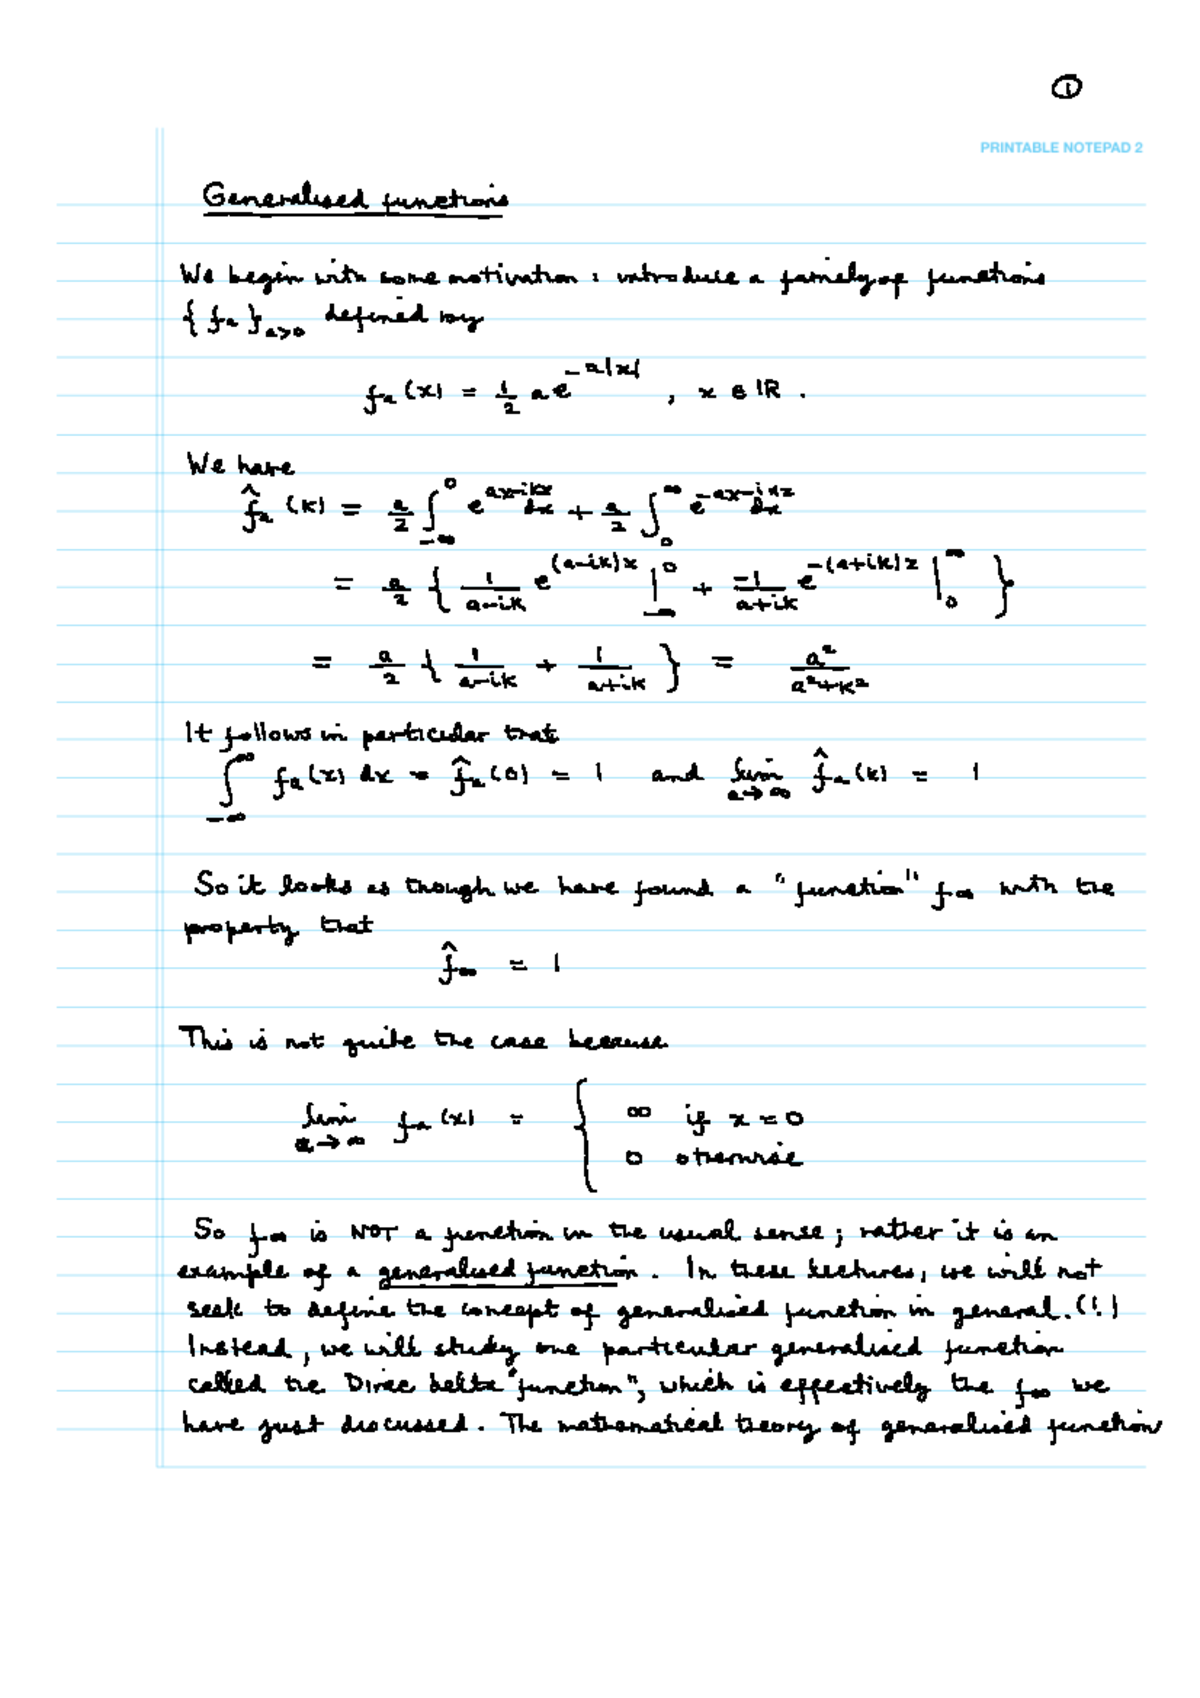 ①
PRINTABLE NOTEPAD 2
Generalised functions
We begin with some motivation : introduce a family of functions
{ fₐ }ₐ>₀ defined by
fₐ(x) = 1/2 a e^{-a|x|} , x ∈ ℝ .
We have
f̂ₐ(k) = a/2 ∫_{-∞}^{0} e^{ax-ikx} dx + a/2 ∫_{0}^{∞} e^{-ax-ikx} dx
= a/2 { 1/(a-ik) e^{(a-ik)x} |_{-∞}^{0} + -1/(a+ik) e^{-(a+ik)x} |_{0}^{∞} }
= a/2 { 1/(a-ik) + 1/(a+ik) } = a²/(a²+k²)
It follows in particular that
∫_{-∞}^{∞} fₐ(x) dx = f̂ₐ(0) = 1 and lim_{a→∞} f̂ₐ(k) = 1
So it looks as though we have found a "function" f_∞ with the
property that
f̂_∞ = 1
This is not quite the case because
lim_{a→∞} fₐ(x) = { ∞ if x = 0
0 otherwise
So f_∞ is NOT a function in the usual sense ; rather it is an
example of a generalised function . In these lectures, we will not
seek to define the concept of generalised function in general. (!)
Instead, we will study one particular generalised function
called the Dirac delta "function", which is effectively the f_∞ we
have just discussed. The mathematical theory of generalised function